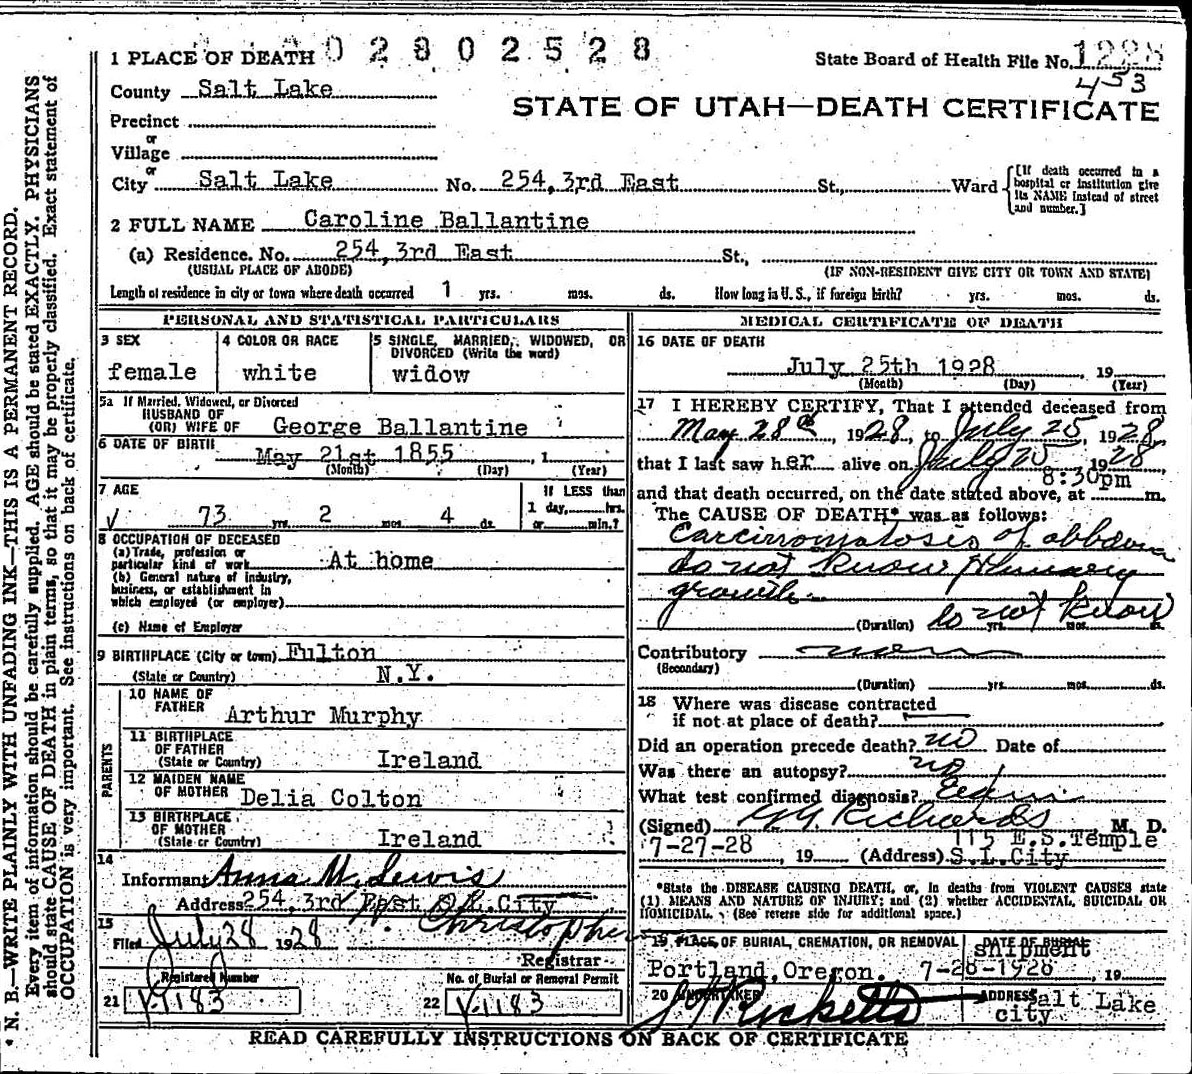 N. B.—WRITE PLAINLY WITH UNFADING INK—THIS IS A PERMANENT RECORD.
Every item of information should be carefully supplied. AGE should be stated EXACTLY. PHYSICIANS
should state CAUSE OF DEATH in plain terms, so that it may be properly classified. Exact statement of
OCCUPATION is very important. See instructions on back of certificate.
1 PLACE OF DEATH 0 2 8 0 2 5 2 8
State Board of Health File No. 1228
453
County Salt Lake
STATE OF UTAH—DEATH CERTIFICATE
Precinct
or
Village
or
City Salt Lake No. 254, 3rd East St., Ward
[If death occurred in a hospital or institution give its NAME instead of street and number.]
2 FULL NAME Caroline Ballantine
(a) Residence. No. 254, 3rd East St.,
(USUAL PLACE OF ABODE) (IF NON-RESIDENT GIVE CITY OR TOWN AND STATE)
Length of residence in city or town where death occurred 1 yrs. mos. ds. How long in U. S., if foreign birth? yrs. mos. ds.
PERSONAL AND STATISTICAL PARTICULARS
3 SEX
female
4 COLOR OR RACE
white
5 SINGLE, MARRIED, WIDOWED, OR
DIVORCED (Write the word)
widow
5a If Married, Widowed, or Divorced
HUSBAND OF
(OR) WIFE OF George Ballantine
6 DATE OF BIRTH May 21st 1855 , 1
(Month) (Day) (Year)
7 AGE
73 yrs. 2 mos. 4 ds.
If LESS than
1 day, hrs.
or min.?
8 OCCUPATION OF DECEASED
(a) Trade, profession or
particular kind of work At home
(b) General nature of industry,
business, or establishment in
which employed (or employer)
(c) Name of Employer
9 BIRTHPLACE (City or town) Fulton
(State or Country) N.Y.
PARENTS
10 NAME OF
FATHER Arthur Murphy
11 BIRTHPLACE
OF FATHER
(State or Country) Ireland
12 MAIDEN NAME
OF MOTHER Delia Colton
13 BIRTHPLACE
OF MOTHER
(State or Country) Ireland
14
Informant Anna M. Lewis
Address 254, 3rd East S.L. City
15
Filed July 28 1928 Christopher
Registrar
Registered Number
21 V-1183
No. of Burial or Removal Permit
22 V-1183
MEDICAL CERTIFICATE OF DEATH
16 DATE OF DEATH
July 25th 1928 , 19
(Month) (Day) (Year)
17 I HEREBY CERTIFY, That I attended deceased from
May 28th, 1928, to July 25, 1928,
that I last saw her alive on July 25 1928,
8:30pm
and that death occurred, on the date stated above, at m.
The CAUSE OF DEATH* was as follows:
Carcinomatosis of abdomen
do not know primary
growth
(Duration) do not know yrs. mos. ds.
Contributory none
(Secondary)
(Duration) yrs. mos. ds.
18 Where was disease contracted
if not at place of death?
Did an operation precede death? no Date of
Was there an autopsy? no
What test confirmed diagnosis?
(Signed) G G Richards M. D.
7-27-28 , 19 (Address) 115 E.S.Temple
S.L.City
*State the DISEASE CAUSING DEATH, or, in deaths from VIOLENT CAUSES state
(1) MEANS AND NATURE OF INJURY; and (2) whether ACCIDENTAL, SUICIDAL OR
HOMICIDAL. (See reverse side for additional space.)
19 PLACE OF BURIAL, CREMATION, OR REMOVAL
Portland, Oregon.
DATE OF BURIAL
shipment
7-28-1928 , 19
20 UNDERTAKER
Ricketts
ADDRESS Salt Lake
city
READ CAREFULLY INSTRUCTIONS ON BACK OF CERTIFICATE